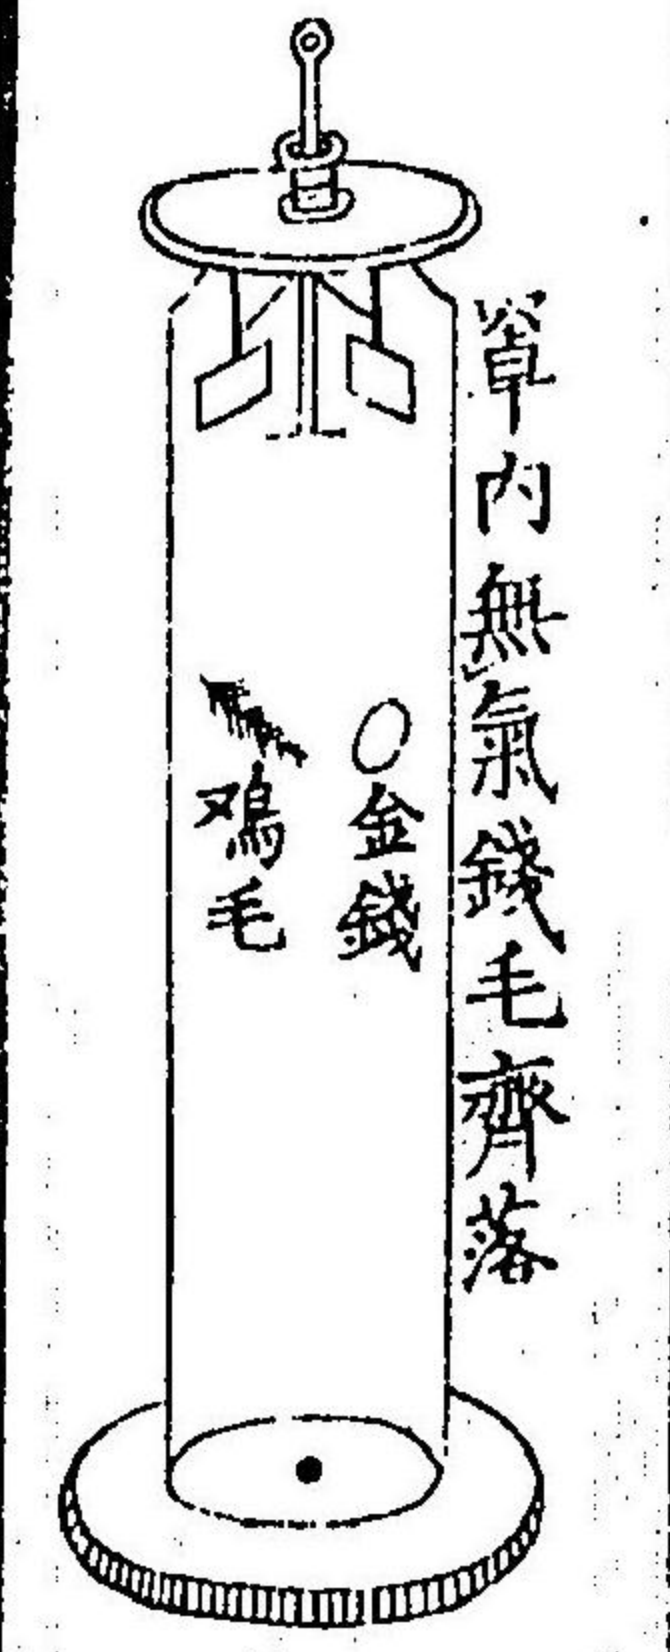 罩内無氣錢毛齊落
金錢
鳮毛